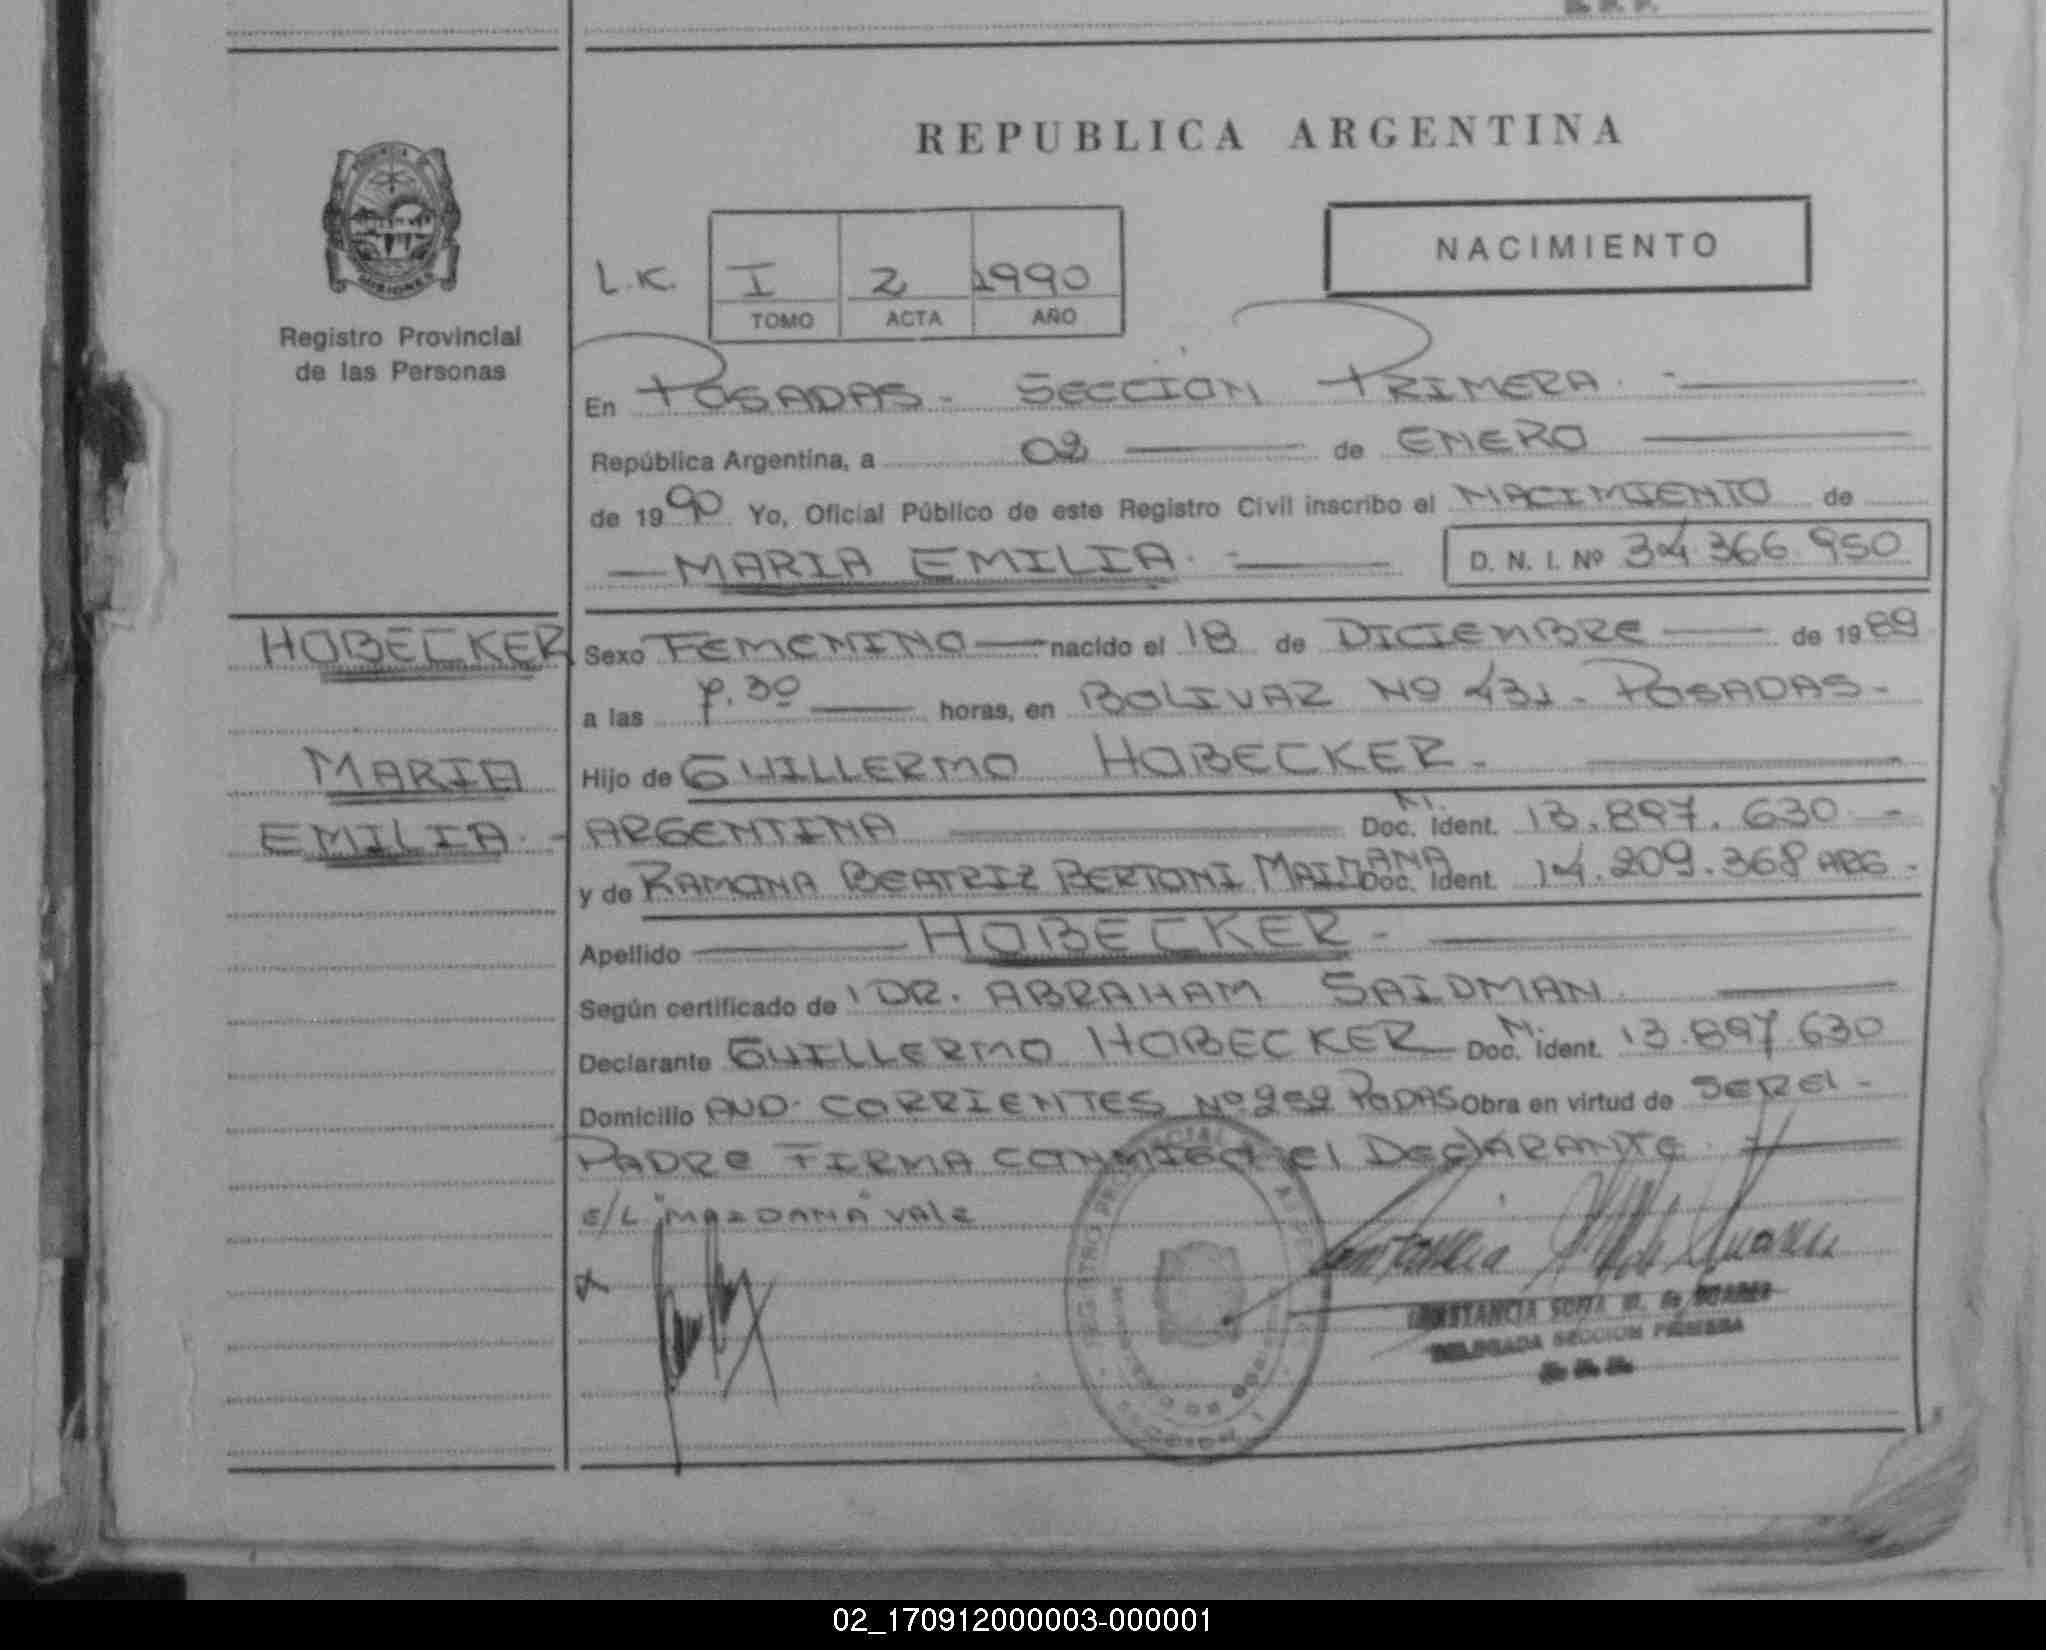 REPUBLICA ARGENTINA
NACIMIENTO
L.K. I 2 1990
TOMO ACTA AÑO
Registro Provincial
de las Personas
En POSADAS - SECCION PRIMERA. -
República Argentina, a 02 de ENERO
de 1990 Yo, Oficial Público de este Registro Civil inscribo el NACIMIENTO de
MARIA EMILIA. - D. N. I. Nº 34.366.950
HOBECKER
Sexo FEMENINO nacido el 18 de DICIEMBRE de 1989
a las 7.30 horas, en BOLIVAR Nº 431 - POSADAS -
MARIA
Hijo de GUILLERMO HOBECKER -
EMILIA. -
ARGENTINA M. Doc. Ident. 13.897.630 -
y de RAMONA BEATRIZ BERTONI MAIDANA Doc. Ident. 14.209.368 ARG -
Apellido HOBECKER -
Según certificado de DR. ABRAHAM SAIDMAN
Declarante GUILLERMO HOBECKER M. Doc. Ident. 13.897.630
Domicilio AVD. CORRIENTES Nº 252 PODAS Obra en virtud de SER El -
PADRE FIRMA CONMIGO El DEClARANTE
E/L "MAIDANA" VALE
CONSTANCIA SOFIA M. de SUAREZ
DELEGADA SECCION PRIMERA
02_170912000003-000001